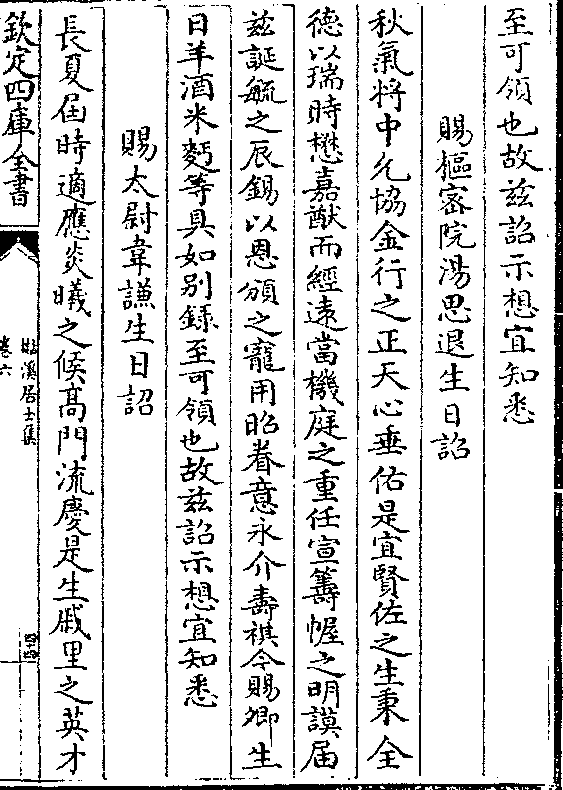 至可領也故茲詔示想宜知悉
賜樞密院湯思退生日詔
秋氣將中允協金行之正天心垂佑是宜賢佐之生秉全
德以瑞時懋嘉猷而經遠當機庭之重任宣籌幄之明謨届
茲誕毓之辰錫以恩頒之寵用昭眷意永介壽祺今賜卿生
日羊酒米麪等具如别錄至可領也故茲詔示想宜知悉
賜太尉韋謙生日詔
長夏届時適應炎曦之候髙門流慶是生戚里之英才
欽定四庫全書
卷六